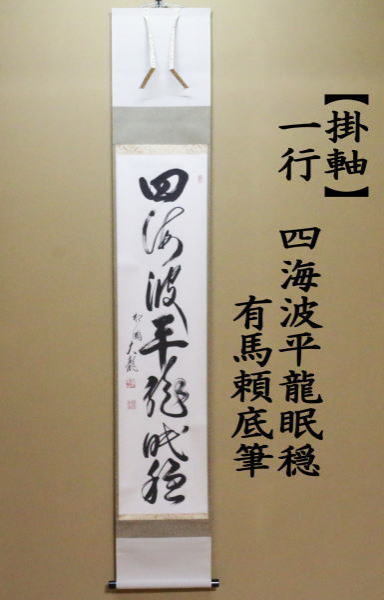 【掛軸】
一行　四海波平龍眠穏
有馬頼底筆
四海波平龍眠穏